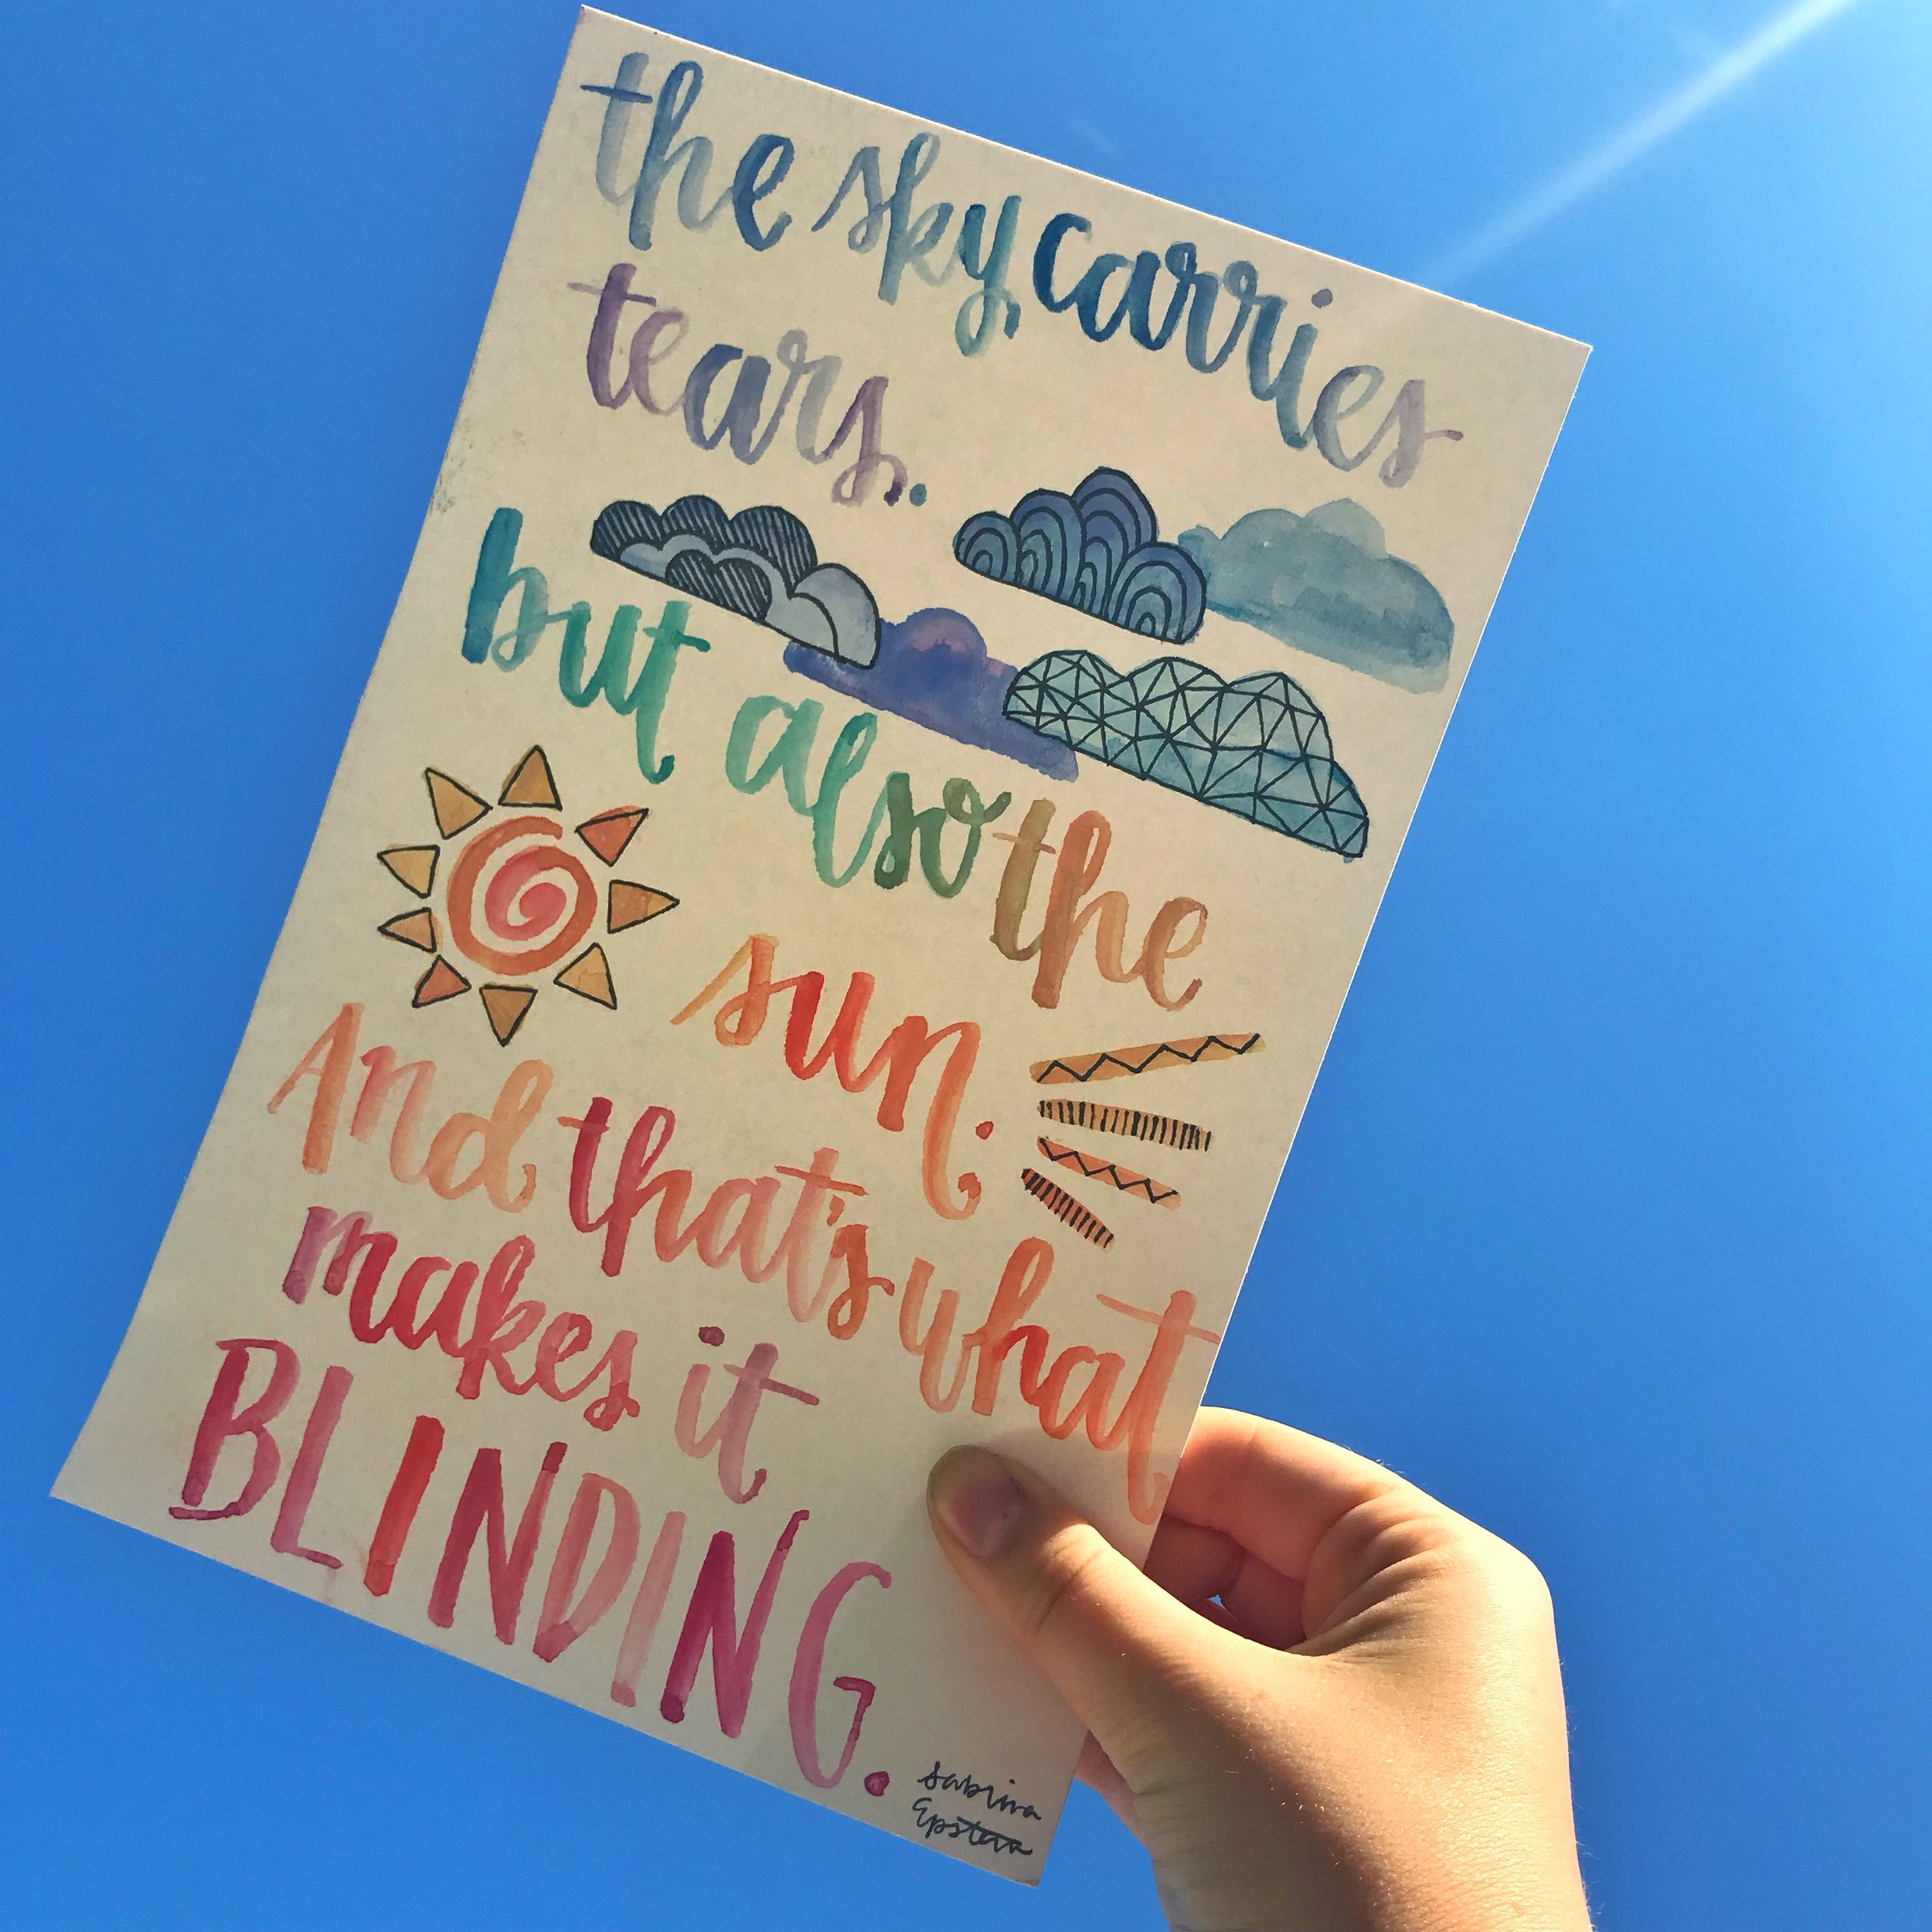 the sky carries
tears.
but also the
sun.
And that's what
makes it
BLINDING.
sabrina
Epstein